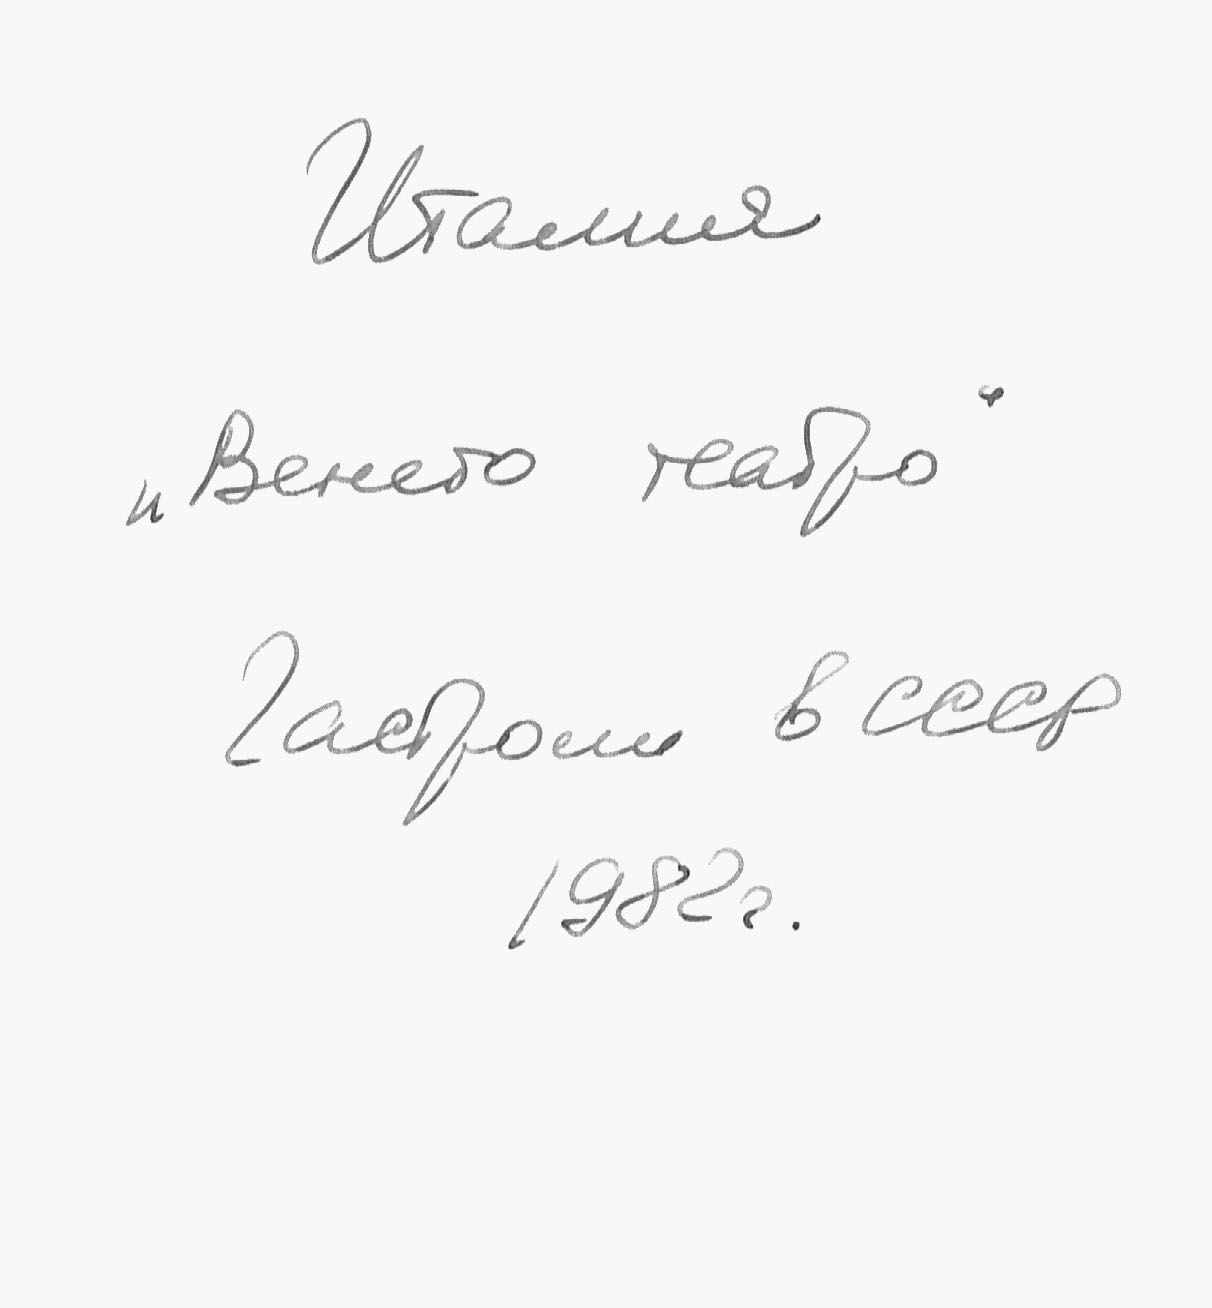 Италия
„Венето театро"
Гастроли в СССР
1982 г.